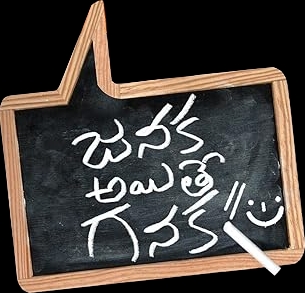 జనక
అయితే
గనక